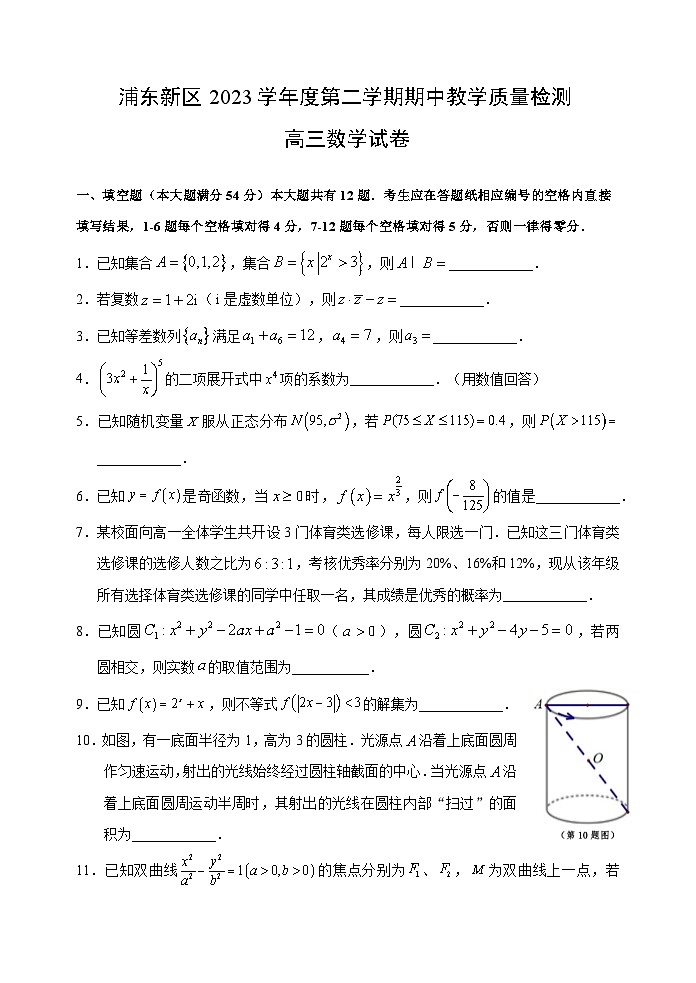 浦东新区 2023 学年度第二学期期中教学质量检测
高三数学试卷
一、填空题（本大题满分 54 分）本大题共有 12 题．考生应在答题纸相应编号的空格内直接
填写结果，1-6 题每个空格填对得 4 分，7-12 题每个空格填对得 5 分，否则一律得零分．
1．已知集合 A = {0,1,2}，集合 B = {x | 2^x > 3}，则 A I B = ____________．
2．若复数 z = 1 + 2i（i 是虚数单位），则 z · z̅ − z = ____________．
3．已知等差数列 {a_n} 满足 a_1 + a_6 = 12，a_4 = 7，则 a_3 = ____________．
4．(3x^2 + 1/x)^5 的二项展开式中 x^4 项的系数为____________．（用数值回答）
5．已知随机变量 X 服从正态分布 N(95, σ^2)，若 P(75 ≤ X ≤ 115) = 0.4，则 P(X > 115) =
____________．
6．已知 y = f(x) 是奇函数，当 x ≥ 0 时，f(x) = x^(2/3)，则 f(−8/125) 的值是____________．
7．某校面向高一全体学生共开设 3 门体育类选修课，每人限选一门．已知这三门体育类
选修课的选修人数之比为 6 : 3 : 1，考核优秀率分别为 20%、16%和 12%，现从该年级
所有选择体育类选修课的同学中任取一名，其成绩是优秀的概率为____________．
8．已知圆 C_1 : x^2 + y^2 − 2ax + a^2 − 1 = 0（a > 0），圆 C_2 : x^2 + y^2 − 4y − 5 = 0，若两
圆相交，则实数 a 的取值范围为___________．
9．已知 f(x) = 2^x + x，则不等式 f(|2x − 3|) < 3 的解集为____________．
10．如图，有一底面半径为 1，高为 3 的圆柱．光源点 A 沿着上底面圆周
作匀速运动，射出的光线始终经过圆柱轴截面的中心．当光源点 A 沿
着上底面圆周运动半周时，其射出的光线在圆柱内部“扫过”的面
积为____________．
A
O
（第 10 题图）
11．已知双曲线 x^2/a^2 − y^2/b^2 = 1(a > 0, b > 0) 的焦点分别为 F_1、F_2，M 为双曲线上一点，若